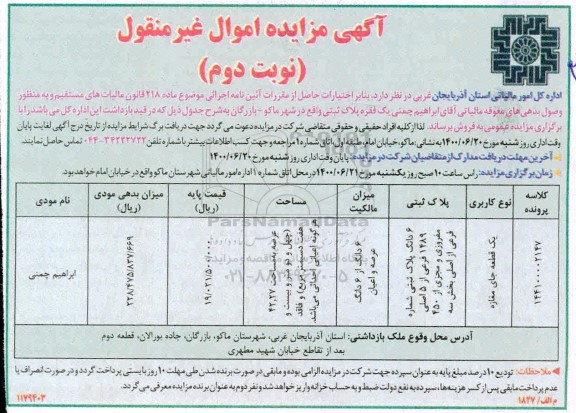 آگهی مزایده اموال غیر منقول
(نوبت دوم)
اداره کل امور مالیاتی استان آذربایجان غربی در نظر دارد، بنابر اختیارات حاصل از مقررات آئین نامه اجرائی موضوع ماده ۲۱۸ قانون مالیات های مستقیم و به منظور
وصول بدهی های معوقه مالیاتی آقای ابراهیم چمنی یک فقره پلاک ثبتی واقع در شهر ماکو - بازرگان به شرح جدول ذیل که در قید بازداشت این اداره کل می باشد را با
برگزاری مزایده عمومی به فروش برساند. لذا از کلیه افراد حقیقی و حقوقی متقاضی شرکت در مزایده دعوت می گردد جهت دریافت برگ شرایط مزایده از تاریخ درج آگهی لغایت پایان
وقت اداری روز شنبه مورخ ۱۴۰۰/۰۶/۲۰ به نشانی: ماکو، خیابان امام، طبقه اول اتاق شماره ۱ مراجعه و جهت کسب اطلاعات بیشتر با شماره تلفن ۳۴۲۲۳۷۲۲-۰۴۴ تماس حاصل نمایند.
آخرین مهلت دریافت مدارک از متقاضیان شرکت در مزایده: پایان وقت اداری روز شنبه مورخ ۱۴۰۰/۰۶/۲۰
زمان برگزاری مزایده: راس ساعت ۱۰ صبح روز یکشنبه مورخ ۱۴۰۰/۰۶/۲۱ در محل اتاق شماره ۱ اداره امور مالیاتی شهرستان ماکو واقع در خیابان امام خواهد بود.
کلاسه پرونده
نوع کاربری
پلاک ثبتی
میزان مالکیت
مساحت
قیمت پایه (ریال)
میزان بدهی مودی (ریال)
نام مودی
۱۴۴۱۰۰۰۰۲۱۴۷
یک قطعه جای مغازه
۶ دانگ پلاک ثبتی شماره
۱۴۸۹ فرعی از ۵ اصلی
مفروزی و مجزی از ۴۵۰
فرعی از اصلی بخش سه
۶ دانگ از ۶ دانگ
عرصه و اعیان
عرصه به مساحت ۴۲,۲۷
(چهل و دو متر و بیست و
هفت دسیمتر مربع) و فاقد
هرگونه اعیانی احداثی می‌باشد.
۱۹/۰۲۱/۵۰۰/۰۰۰
۳۲۸/۴۷۵/۸۳۷/۶۶۹
ابراهیم چمنی
آدرس محل وقوع ملک بازداشتی: استان آذربایجان غربی، شهرستان ماکو، بازرگان، جاده بورالان، قطعه دوم
بعد از تقاطع خیابان شهید مطهری
ملاحظات: تودیع ۱۰ درصد مبلغ پایه به عنوان سپرده جهت شرکت در مزایده الزامی بوده و مابقی در صورت برنده شدن طی مهلت ۱۰ روز بایستی پرداخت گردد و در صورت انصراف یا
عدم پرداخت مابقی پس از کسر هزینه ها، سپرده به نفع دولت ضبط و به حساب خزانه واریز خواهد شد و نفر دوم به عنوان برنده مزایده معرفی می گردد.
م الف/ ۱۸۲۷
۱۱۷۹۴۰۳
ParsNamadData
۰۲۱-۸۸۳۴۹۶۷۰-۵